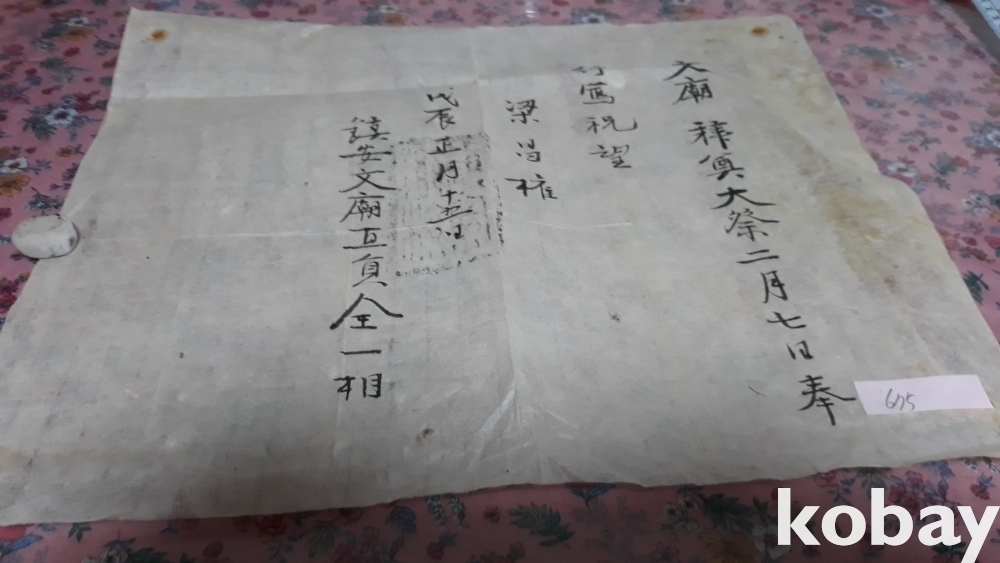 文廟 釋奠大祭二月七日奉
行寫祝望
梁昌權
戊辰正月十五日
鎭安文廟直員全一相
635
kobay